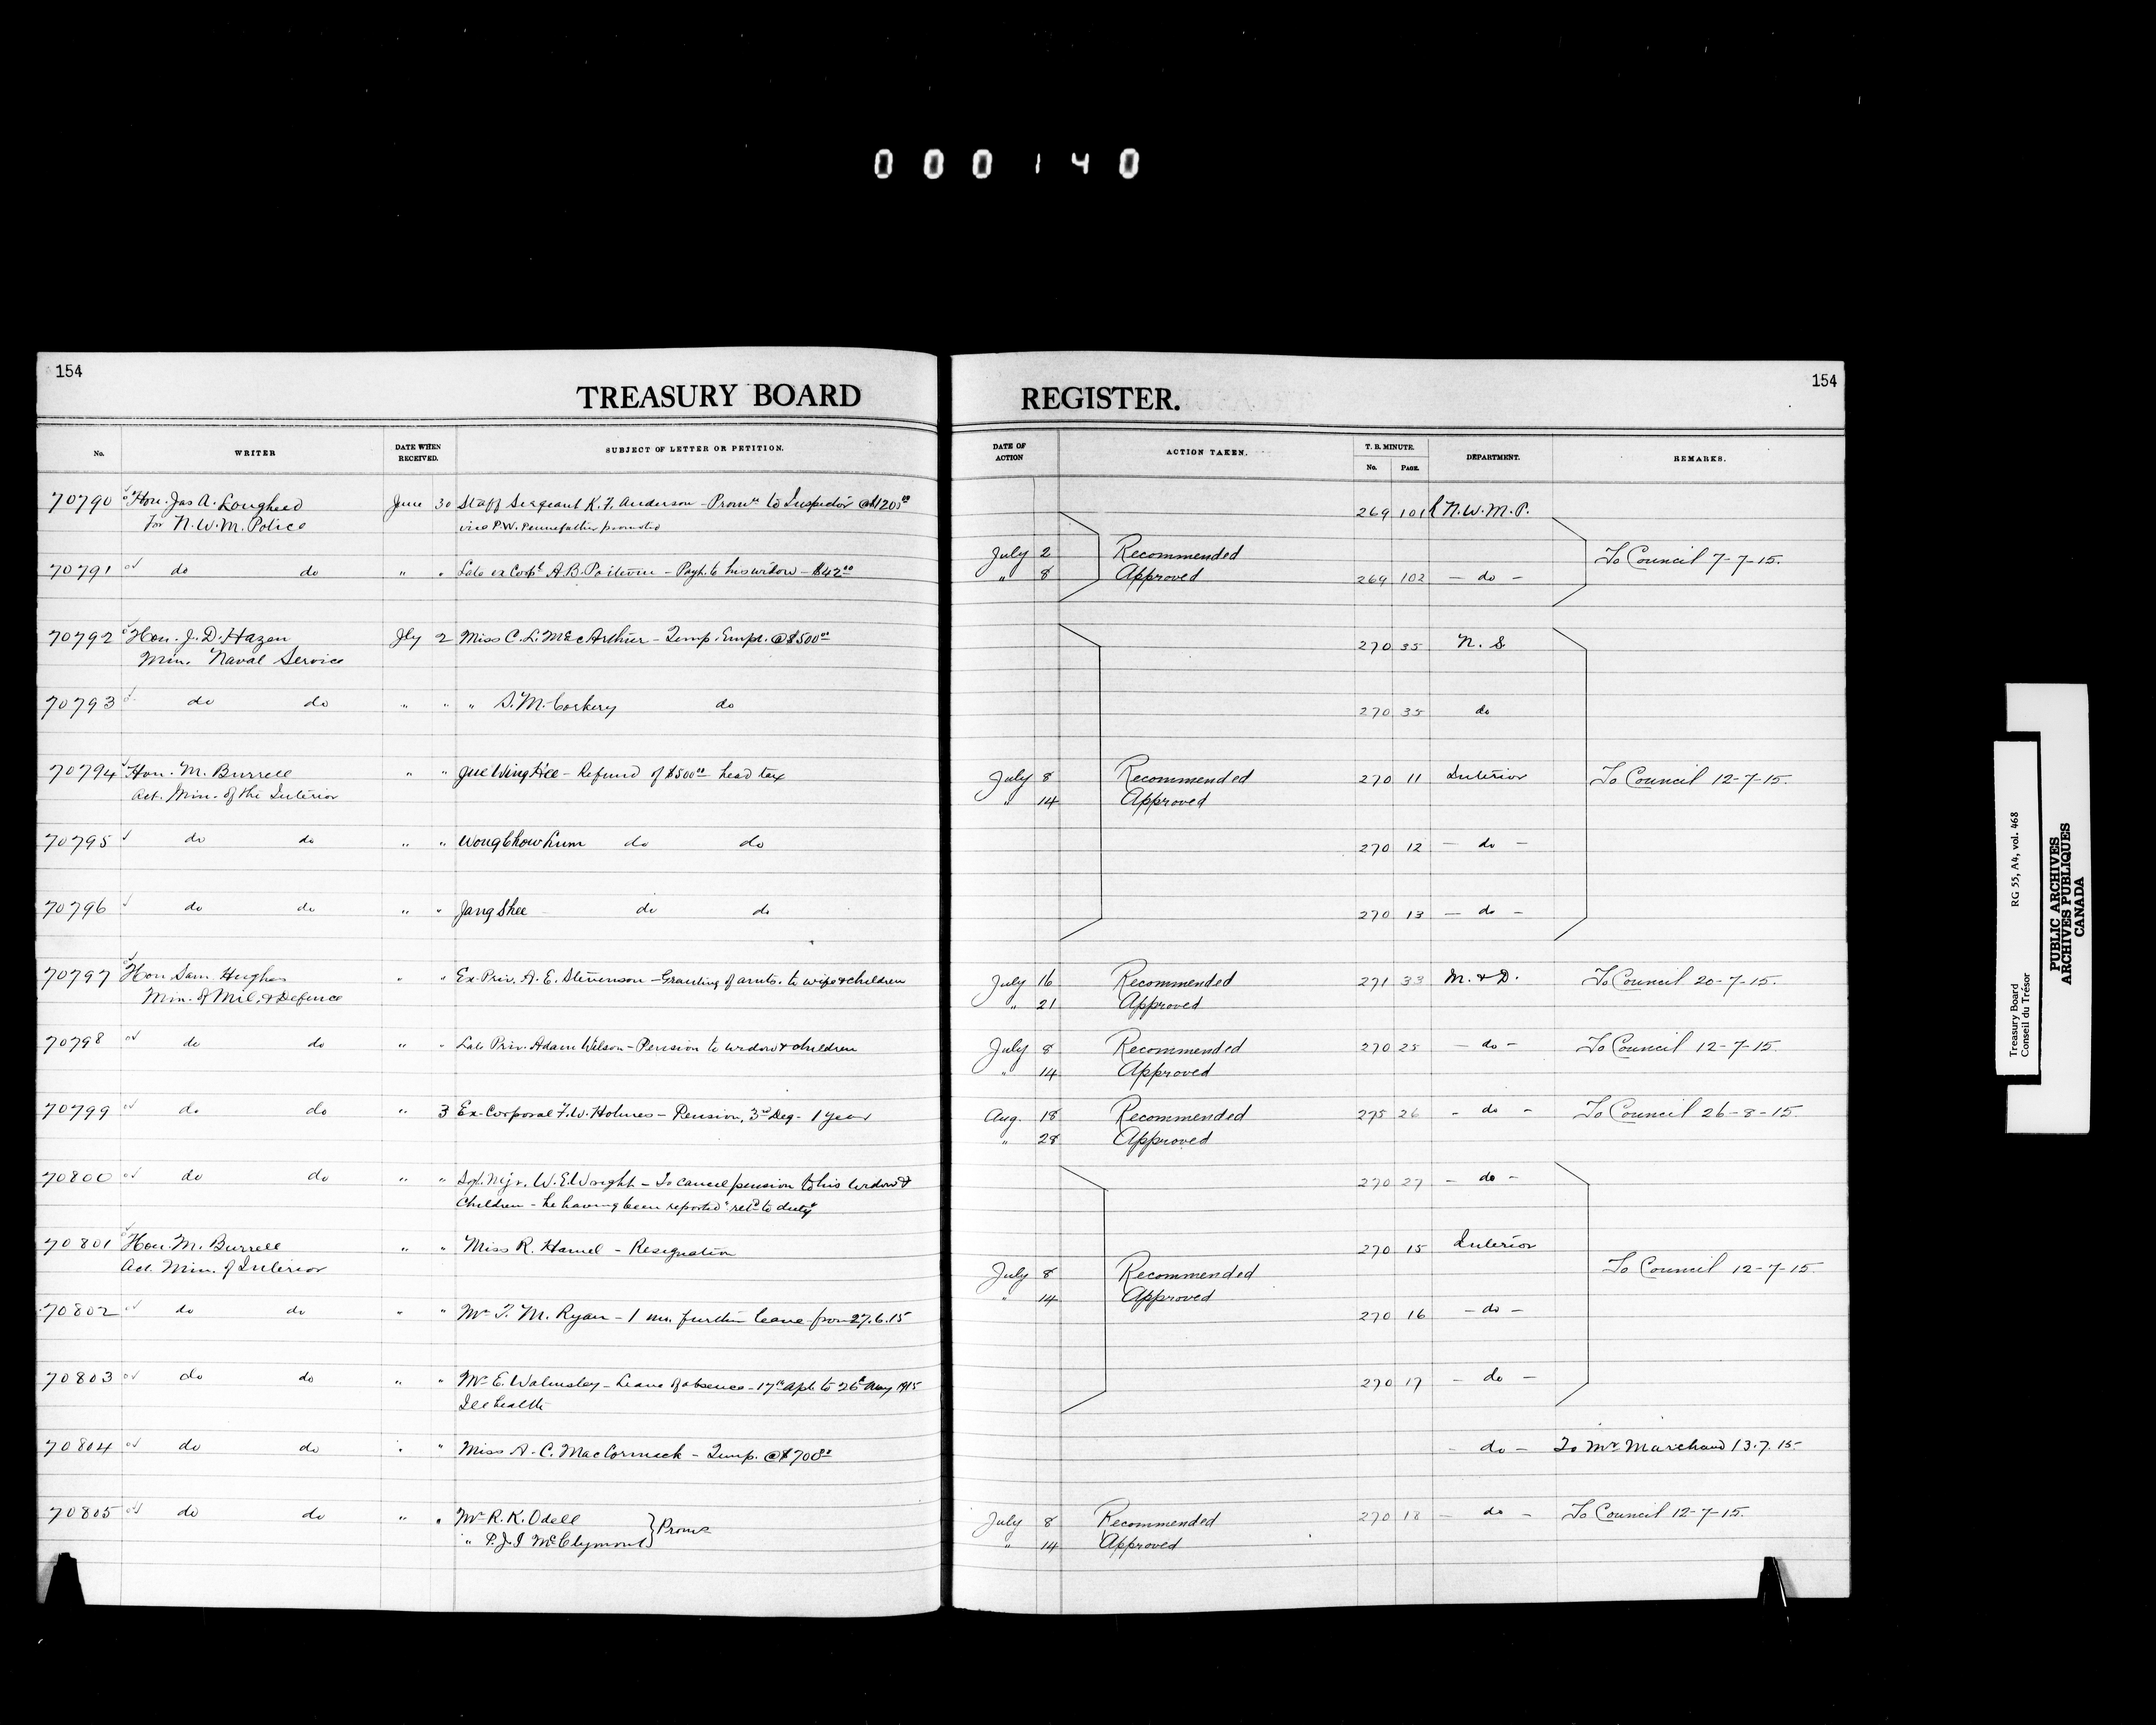 000140
154
TREASURY BOARD REGISTER.
154
No. WRITER DATE WHEN RECEIVED. SUBJECT OF LETTER OR PETITION. DATE OF ACTION ACTION TAKEN. T. B. MINUTE. No. PAGE. DEPARTMENT. REMARKS.
70790 Hon. Jas A. Lougheed June 30 Staff Sergeant K. F. Anderson - Promn to Inspector @ $1200 269 101 N.W.M.P.
for N.W.M. Police vice P.W. Pennefather promoted
July 2 Recommended To Council 7-7-15.
70791 do do " " Late ex Corpl A.B. Poitevin - Payt. to his widow - $42.00 " 8 Approved 269 102 - do -
70792 Hon. J. D. Hazen Jly 2 Miss C. L. McArthur - Temp. Empt. @ $500.00 270 35 N. S
Min. Naval Service
70793 do do " " " S. M. Corkery do 270 35 do
70794 Hon. M. Burrell " " Jue Wing Kee - Refund of $500.00 head tax July 8 Recommended 270 11 Interior To Council 12-7-15.
Act. Min. of the Interior " 14 Approved
70795 do do " " Wong Chow Lum do do 270 12 - do -
70796 do do " " Jang Shee do do 270 13 - do -
70797 Hon Sam Hughes " " Ex-Priv. A. E. Stevenson - Granting of amts. to wife & children July 16 Recommended 271 33 M. & D. To Council 20-7-15.
Min. of Mil. & Defence " 21 Approved
70798 do do " " Late Priv. Adam Wilson - Pension to widow & children July 8 Recommended 270 25 - do - To Council 12-7-15.
" 14 Approved
70799 do do " 3 Ex-Corporal F. W. Holmes - Pension, 3rd Deg - 1 year Aug. 18 Recommended 275 26 - do - To Council 26-8-15.
" 28 Approved
70800 do do " " Sgt. Mjr. W. E. Wright - To cancel pension to his widow & 270 27 - do -
Children - he having been reported "retd to duty"
70801 Hon. M. Burrell " " Miss R. Hamel - Resignation 270 15 Interior
Act. Min. of Interior July 8 Recommended To Council 12-7-15.
" 14 Approved
70802 do do " " Mr T. M. Ryan - 1 mo. further leave from 27.6.15 270 16 - do -
70803 do do " " Mr E. Walmsley - Leave of absence - 17th Apl. to 26th May 1915 270 17 - do -
Ill health
70804 do do " " Miss A. C. MacCormack - Temp. @ $700.00 - do - To Mr Marchand 13.7.15
70805 do do " " Mr R. K. Odell July 8 Recommended 270 18 - do - To Council 12-7-15.
" P. J. I McClymont } Promn " 14 Approved
Treasury Board RG 55, A4, vol. 468
Conseil du Trésor
PUBLIC ARCHIVES
ARCHIVES PUBLIQUES
CANADA